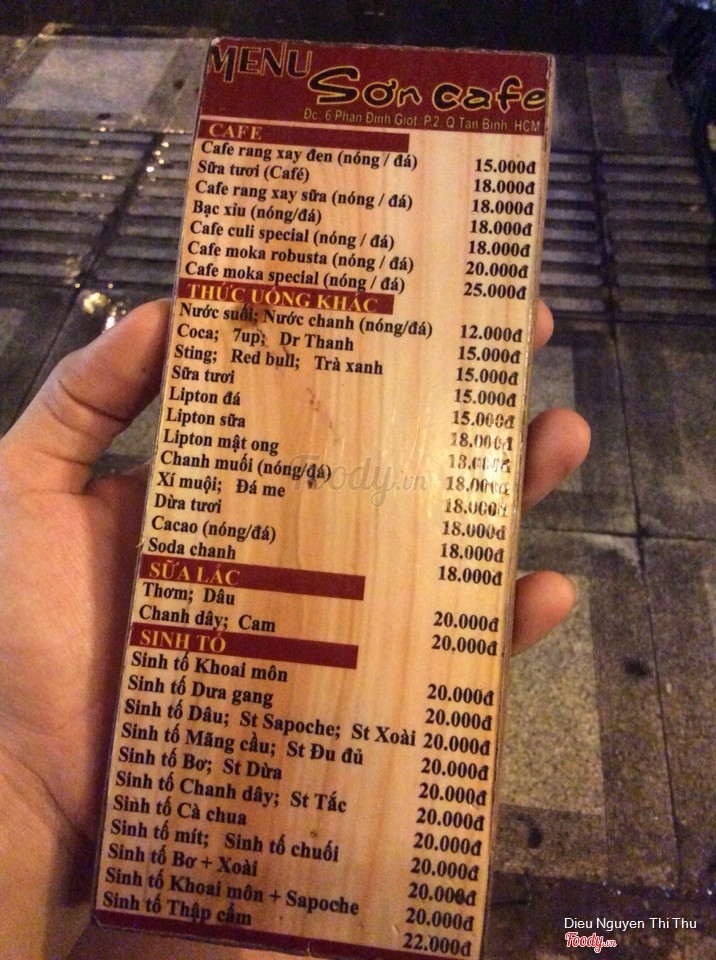 MENU Sơn cafe
Đc: 6 Phan Đình Giót, P.2, Q.Tân Bình, HCM
CAFE
Cafe rang xay đen (nóng / đá) 15.000đ
Sữa tươi (Café) 18.000đ
Cafe rang xay sữa (nóng / đá) 18.000đ
Bạc xỉu (nóng/đá) 18.000đ
Cafe culi special (nóng / đá) 18.000đ
Cafe moka robusta (nóng / đá) 20.000đ
Cafe moka special (nóng / đá) 25.000đ
THỨC UỐNG KHÁC
Nước suối; Nước chanh (nóng/đá) 12.000đ
Coca; 7up; Dr Thanh 15.000đ
Sting; Red bull; Trà xanh 15.000đ
Sữa tươi 15.000đ
Lipton đá 15.000đ
Lipton sữa 18.000đ
Lipton mật ong 18.000đ
Chanh muối (nóng/đá) 18.000đ
Xí muội; Đá me 18.000đ
Dừa tươi 18.000đ
Cacao (nóng/đá) 18.000đ
Soda chanh 18.000đ
SỮA LẮC
Thơm; Dâu 20.000đ
Chanh dây; Cam 20.000đ
SINH TỐ
Sinh tố Khoai môn 20.000đ
Sinh tố Dưa gang 20.000đ
Sinh tố Dâu; St Sapoche; St Xoài 20.000đ
Sinh tố Mãng cầu; St Đu đủ 20.000đ
Sinh tố Bơ; St Dừa 20.000đ
Sinh tố Chanh dây; St Tắc 20.000đ
Sinh tố Cà chua 20.000đ
Sinh tố mít; Sinh tố chuối 20.000đ
Sinh tố Bơ + Xoài 20.000đ
Sinh tố Khoai môn + Sapoche 20.000đ
Sinh tố Thập cẩm 22.000đ
Foody.vn
Dieu Nguyen Thi Thu
Foody.vn